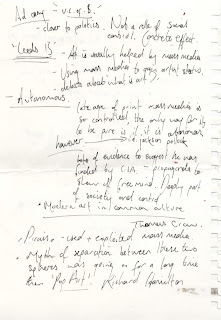 - closer to politics. Not a role of social
control. Concrete effect
- Art is usually helped by mass media
- Young mass media to give artist status.
- debate about what is art
- Autonomous.
age of print mass media is
so controlled the only way for it
to be pure is if it is autonomous
however jackson pollock
of evidence to suggest he was
funded by C.I.A. propaganda to
show of freemind. Apply part
of society and control
- Modern art in common culture
Thomas Crow.
- used + exploited mass media
- Myth of separation between these two
spheres was going on for a long time
then Pop Art! Richard Hamilton